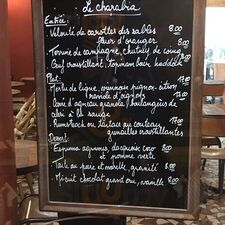 Le charabia
Entrée:
- Velouté de carottes des sables 8.00
fleur d'oranger
- Terrine de campagne, chutney de coing 8.00
- Oeuf croustillant, topinambour, haddock 8.00
Plat:
- Merlu de ligne, pignon-citron 17.00
viande d'oignons
- Carré d'agneau granola, boulangère de
céleri à la sauge
- Rumsteack ou tartare au couteau, 17.00
grenailles croustillantes
Dessert:
- Espuma agrumes, dacquoise coco 8.00
et pomme verte
- Tarte au poire et noisette, granité 8.00
- Biscuit chocolat grand cru, vanille 8.00